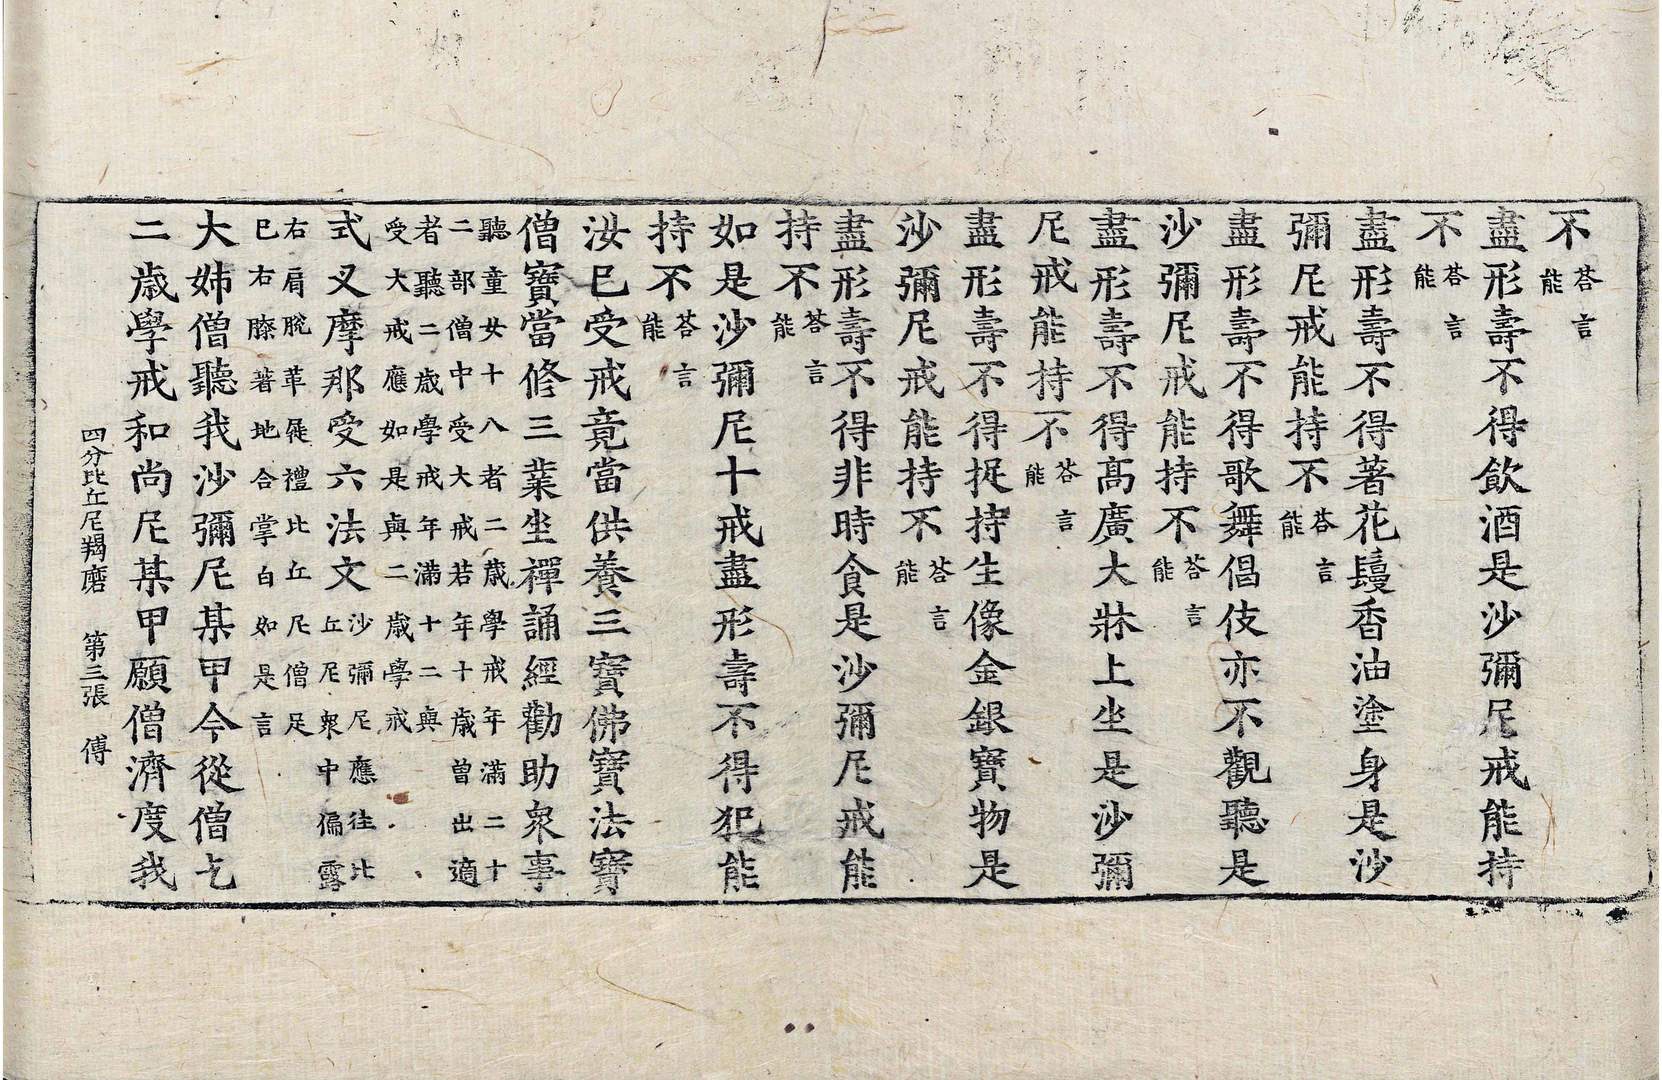 不答言能
盡形壽不得飲酒是沙彌尼戒能持
不答言能
盡形壽不得著花鬘香油塗身是沙
彌尼戒能持不答言能
盡形壽不得歌舞倡伎亦不觀聽是
沙彌尼戒能持不答言能
盡形壽不得高廣大牀上坐是沙彌
尼戒能持不答言能
盡形壽不得捉持生像金銀寶物是
沙彌尼戒能持不答言能
盡形壽不得非時食是沙彌尼戒能
持不答言能
如是沙彌尼十戒盡形壽不得犯能
持不答言能
汝已受戒竟當供養三寶佛寶法寶
僧寶當修三業坐禪誦經勸助眾事
聽童女十八者二歲學戒年滿二十
二部僧中受大戒若年十歲曾出適
者聽二歲學戒年滿十二與
受大戒應如是與二歲學戒
式叉摩那受六法文沙彌尼應往比丘尼眾中偏露
右肩脫革屣禮比丘尼僧足
已右膝著地合掌白如是言
大姊僧聽我沙彌尼某甲今從僧乞
二歲學戒和尚尼某甲願僧濟度我
四分比丘尼羯磨 第三張 傅